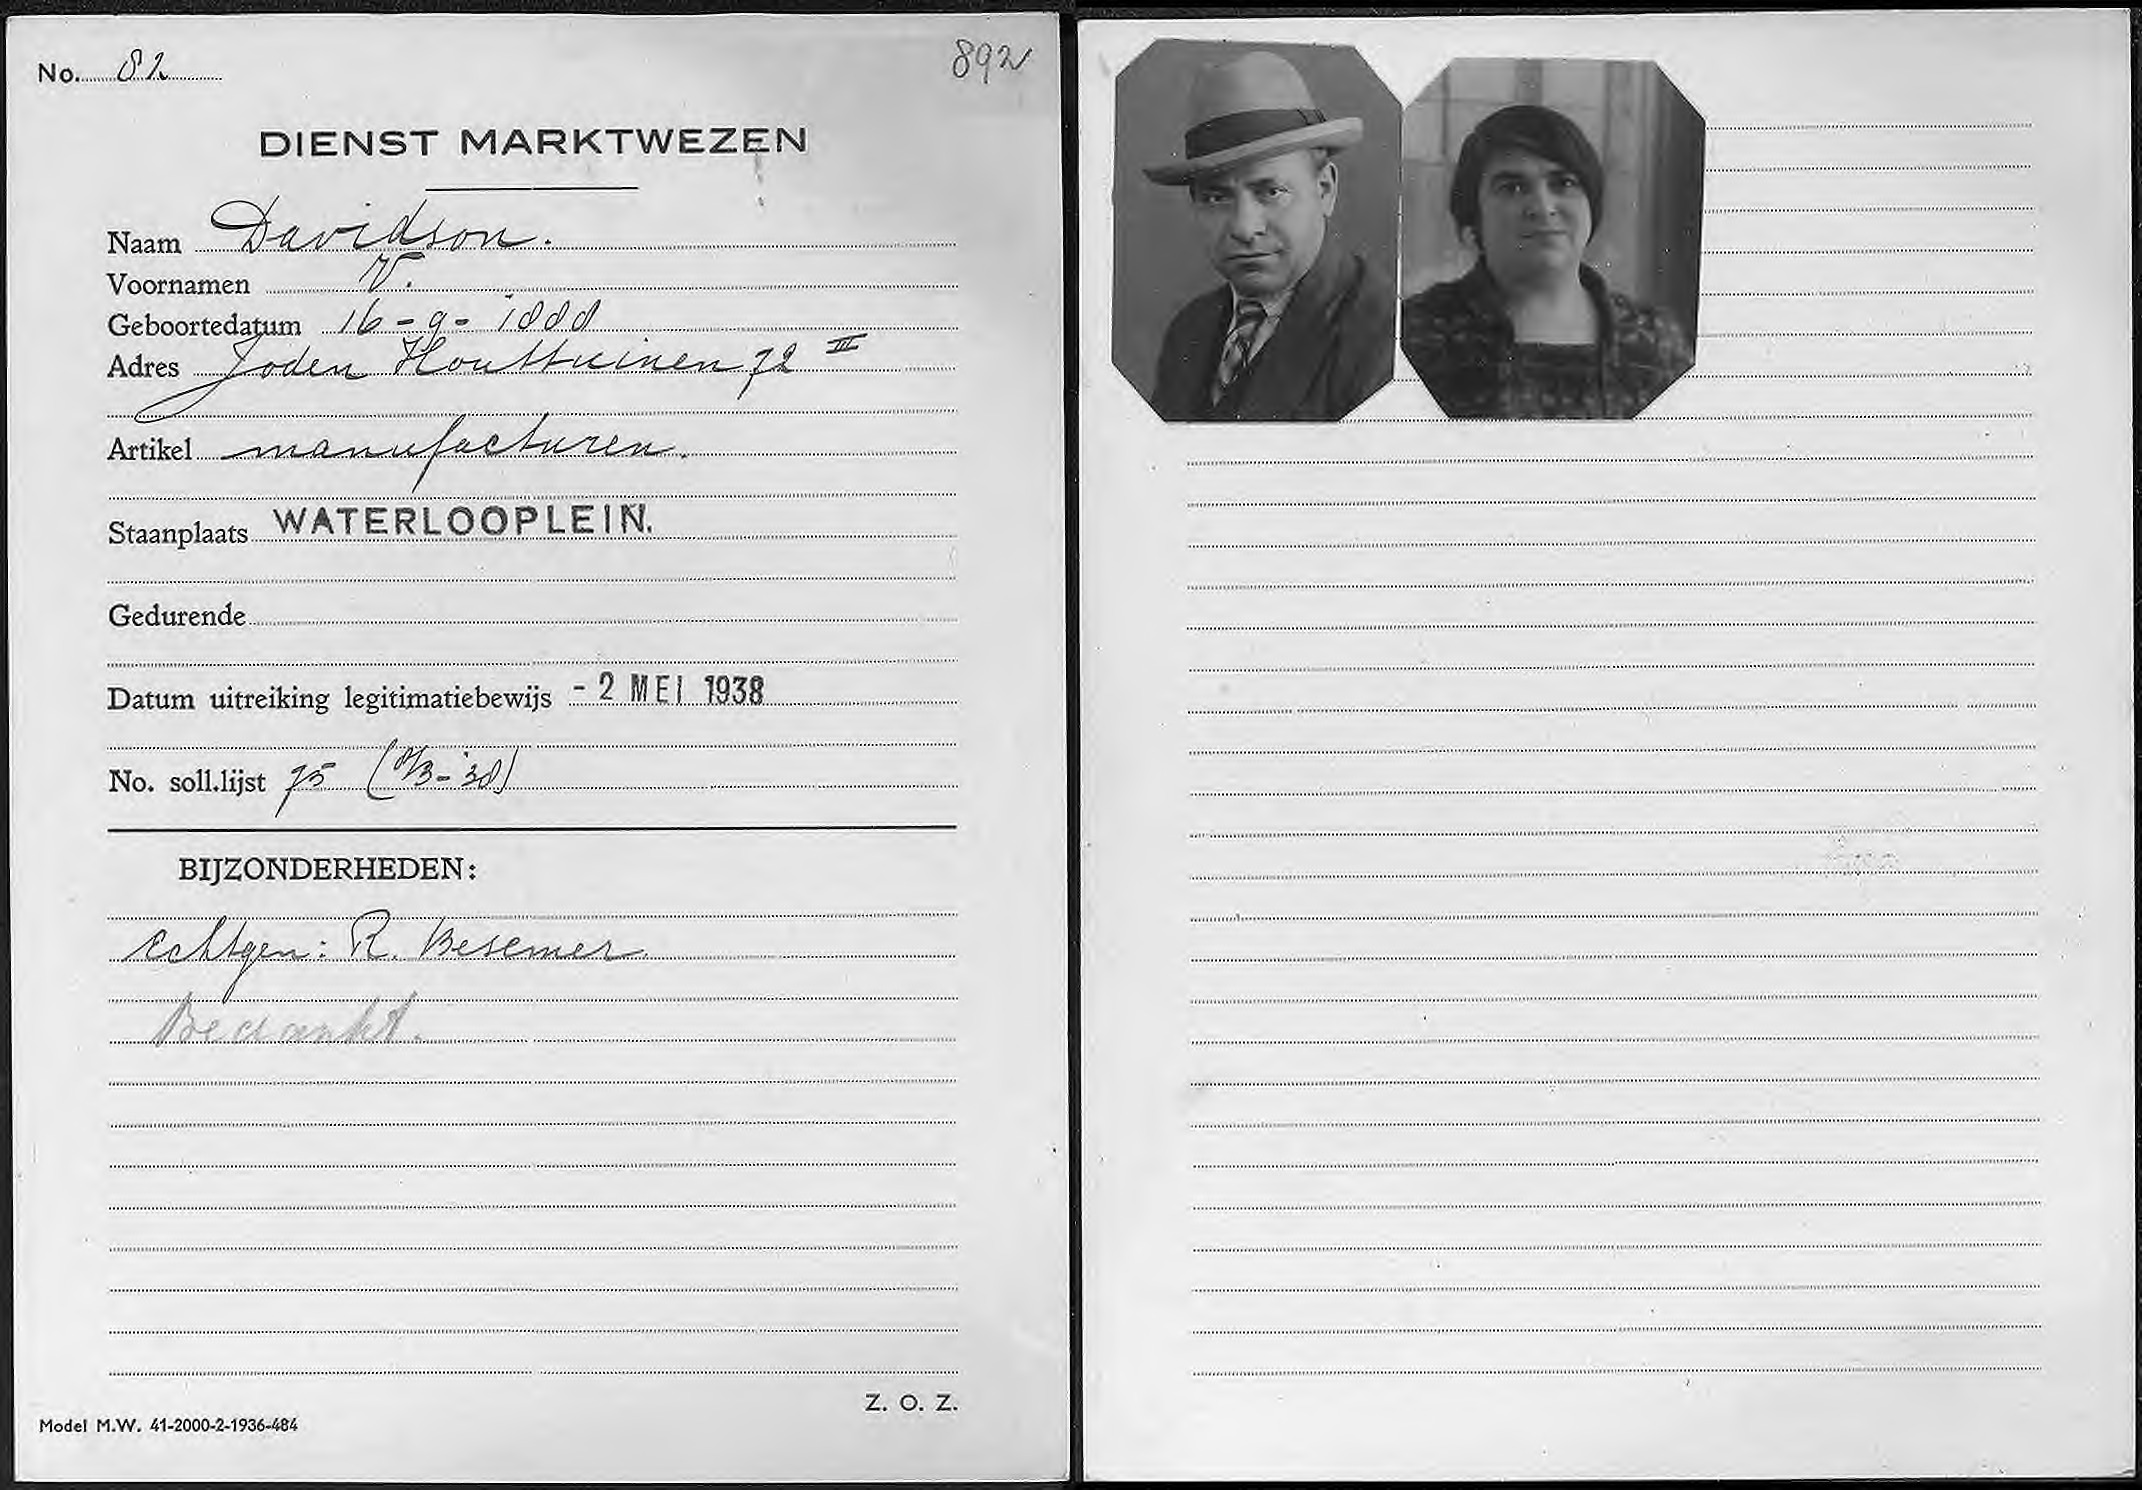 No. 82
892
DIENST MARKTWEZEN
Naam Davidson.
Voornamen V.
Geboortedatum 16-9-1888
Adres Joden Houttuinen 72 III
Artikel manufacturen.
Staanplaats WATERLOOPLEIN.
Gedurende
Datum uitreiking legitimatiebewijs - 2 MEI 1938
No. soll.lijst 75
BIJZONDERHEDEN:
Echtgen: R. Besemer.
Bedankt.
Z. O. Z.
Model M.W. 41-2000-2-1936-484